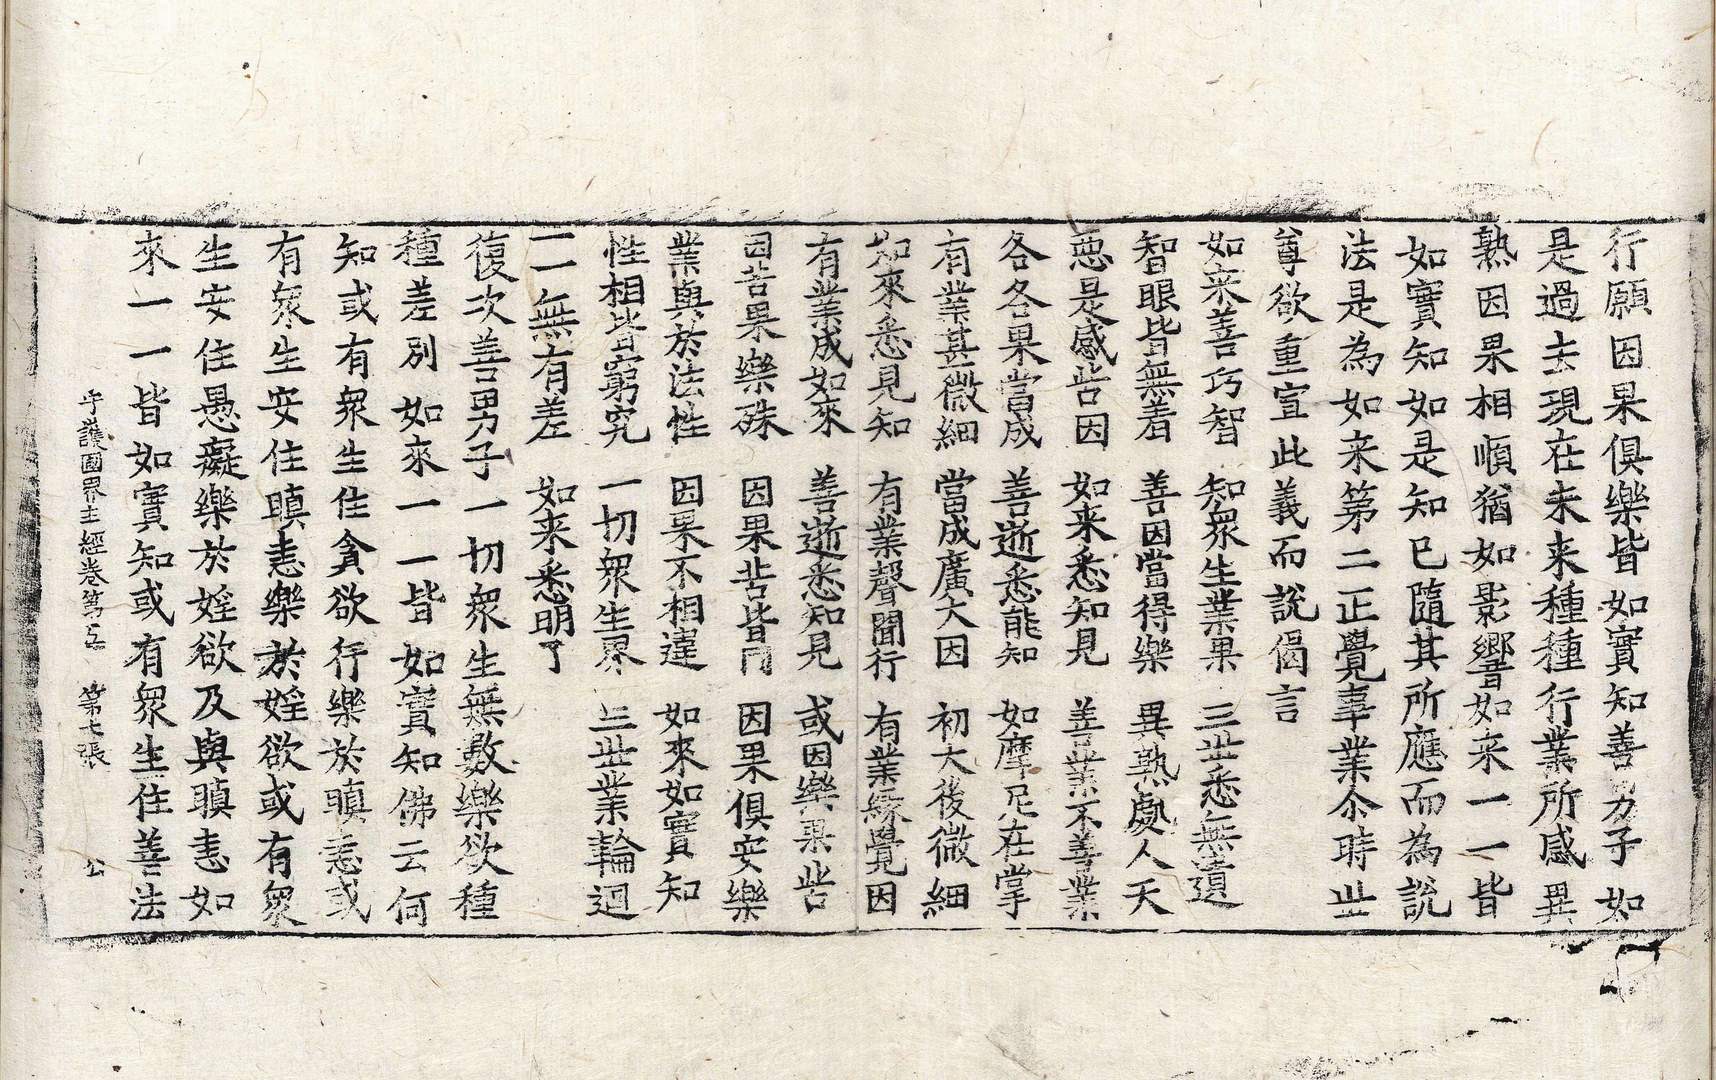 行願因果俱樂皆如實知善男子如
是過去現在未来種種行業所感異
熟因果相順猶如影響如来一一皆
如實知如是知已隨其所應而為說
法是為如来第二正覺事業尒時世
尊欲重宣此義而說偈言
如来善巧智 知衆生業果 三世悉無遺
智眼皆無着 善因當得樂 異熟處人天
惡是感苦因 如来悉知見 善業不善業
各各果當成 善逝悉能知 如摩尼在掌
有業甚微細 當成廣大因 初大後微細
如來悉見知 有業聲聞行 有業緣覺因
有業成如來 善逝悉知見 或因樂果苦
因苦果樂殊 因果苦皆同 因果俱安樂
業與於法性 因果不相違 如來如實知
性相皆窮究 一切衆生界 三世業輪迴
一一無有差 如来悉明了
復次善男子一切衆生無數樂欲種
種差別如來一一皆如實知佛云何
知或有衆生住貪欲行樂於瞋恚或
有衆生安住瞋恚樂於婬欲或有衆
生安住愚癡樂於婬欲及與瞋恚如
來一一皆如實知或有衆生住善法
守護國界主經卷第五 第七張 公